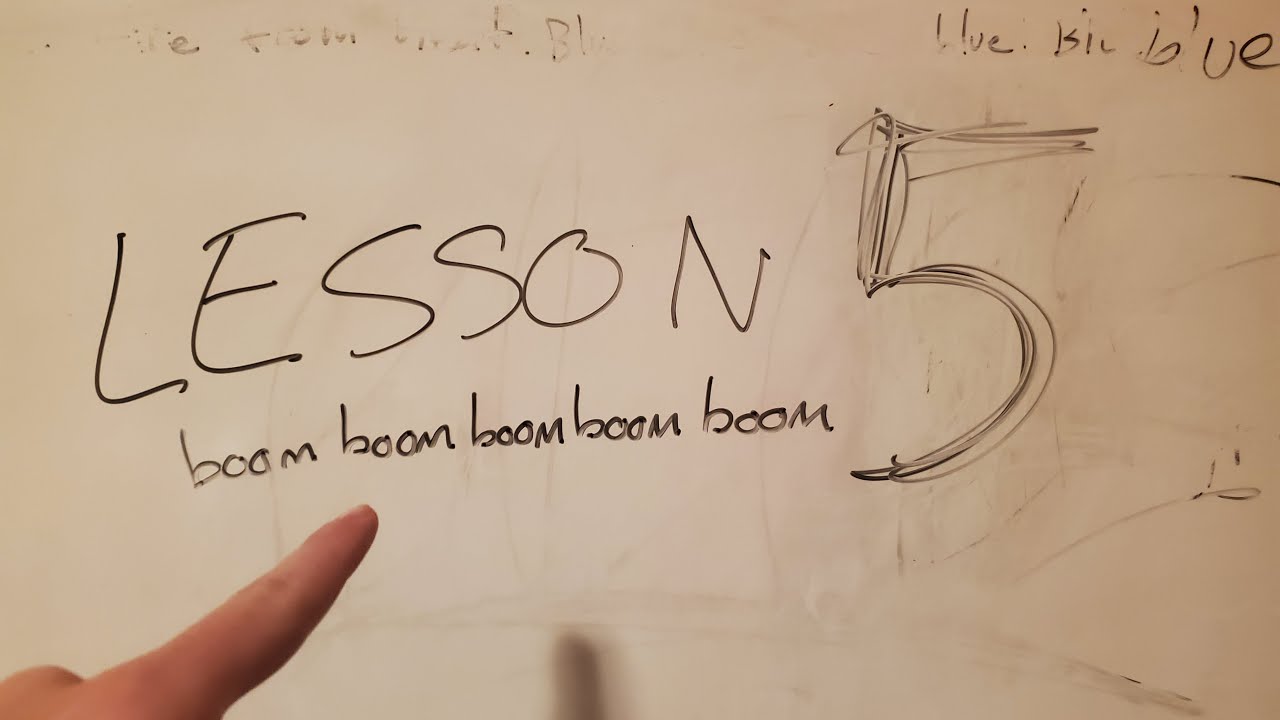 from Blu blue. blue
LESSON 5
boom boom boom boom boom